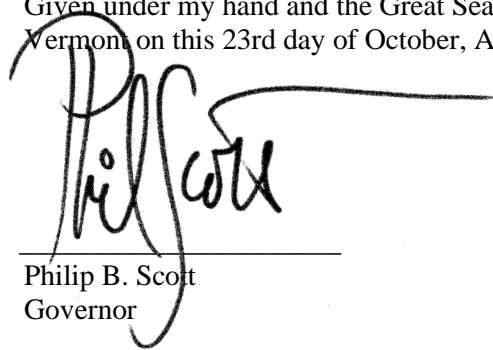 Given under my hand and the Great Sea
Vermont on this 23rd day of October, A
Phil Scott
Philip B. Scott
Governor